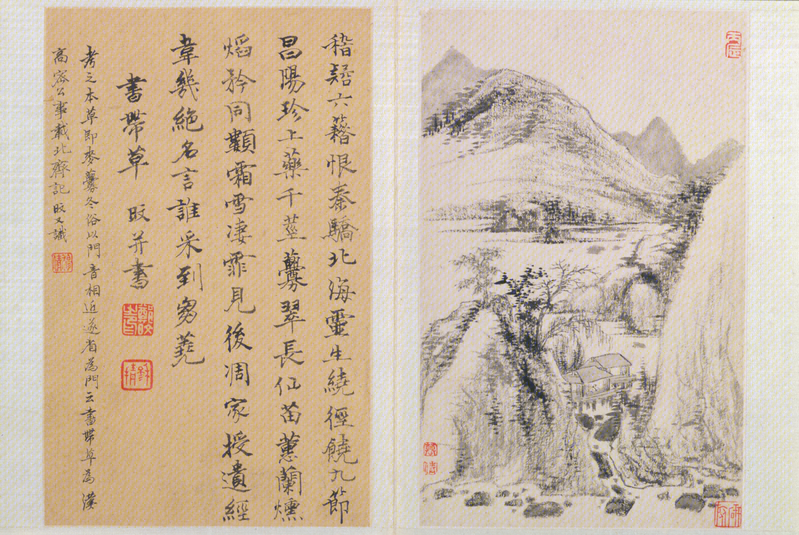 稽六藉恨秦驕北海靈生繞徑饒九節
昌陽珍上藥千莖虋翠長仙苗蕙蘭燻
熖矜同顥霜雪凄霏見後凋家授遺經
韋幾絕名言誰采到芻蕘
書帶草 旼并書
考之本草即麥虋冬俗以門音相近遂省為門云書帶草為漢
高密公事載北齊記 旼又識